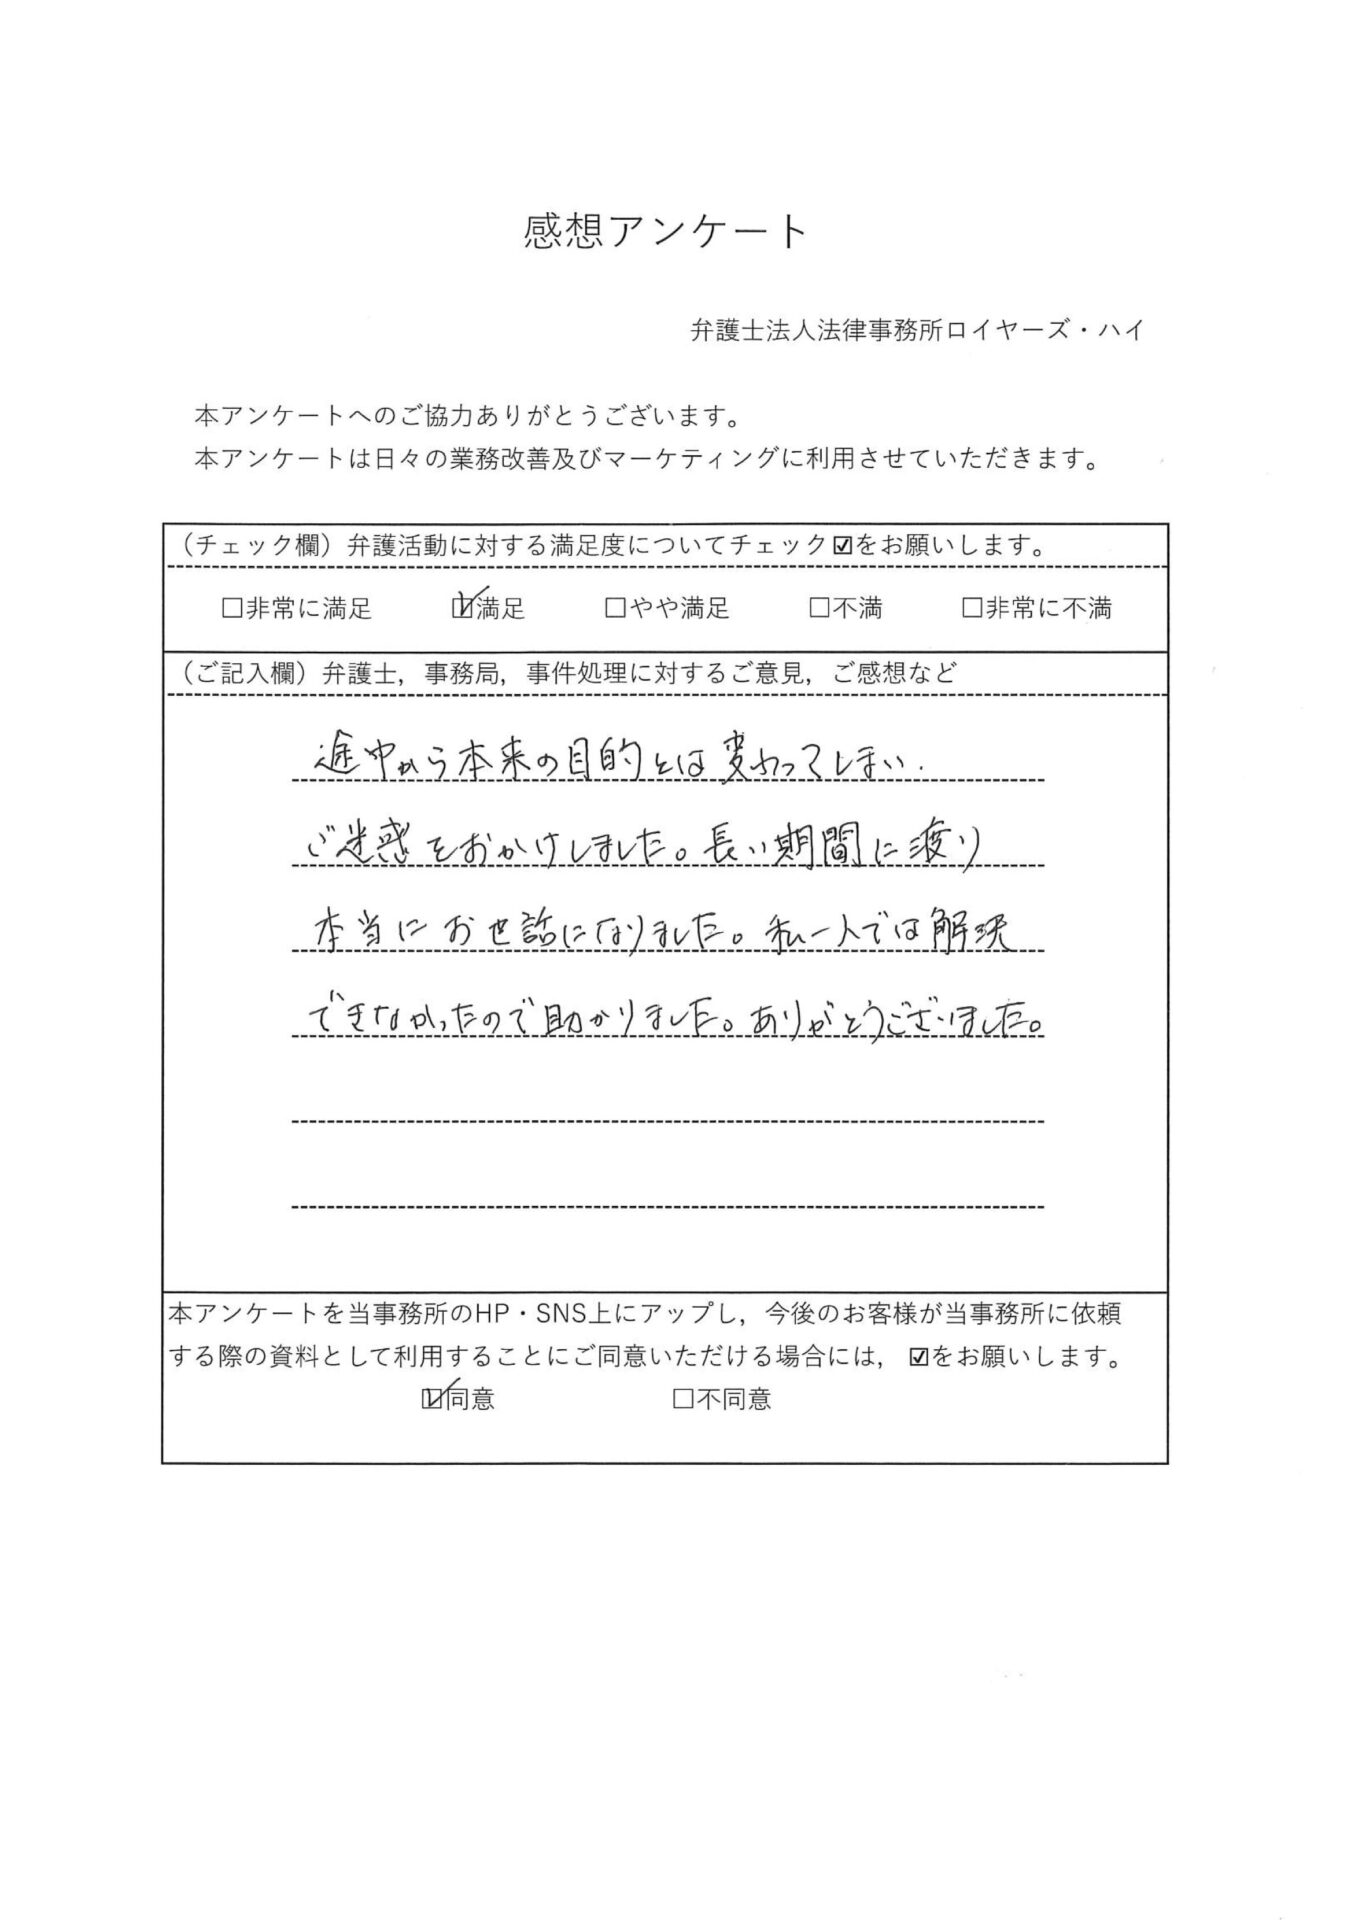 感想アンケート
弁護士法人法律事務所ロイヤーズ・ハイ
本アンケートへのご協力ありがとうございます。
本アンケートは日々の業務改善及びマーケティングに利用させていただきます。
（チェック欄）弁護活動に対する満足度についてチェック☑をお願いします。
□非常に満足 ☑満足 □やや満足 □不満 □非常に不満
（ご記入欄）弁護士，事務局，事件処理に対するご意見，ご感想など
途中から本来の目的とは変わってしまい．
ご迷惑をおかけしました。長い期間に渡り
本当にお世話になりました。私一人では解決
できなかったので助かりました。ありがとうございました。
本アンケートを当事務所のHP・SNS上にアップし，今後のお客様が当事務所に依頼
する際の資料として利用することにご同意いただける場合には，☑をお願いします。
☑同意 □不同意